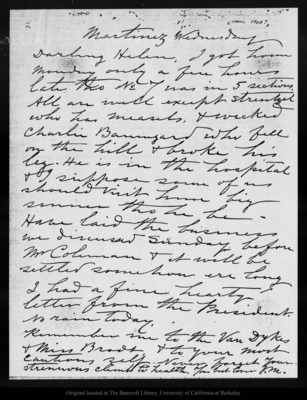 Martinez Wednesday
Darling Helen, I got home
Monday only a few hours
late tho No 7 was in 5 sections.
All are well except Strentzel
who has measels, & wicked
Charlie Baumgard who fell
on the hill & broke his
leg. He is in the hospital
& I suppose some of us
should visit him big
sinner tho he be —
Have laid the business
we discussed Sunday before
Mr Coleman & it will be
settled somehow ere long
I had a fine hearty
letter from the President.
No rain today.
Remember me to the Van Dykes
& Miss Brooks & to your most
cautious self & never forget your
strenuous climb to health.
Original located at The Bancroft Library, University of California at Berkeley